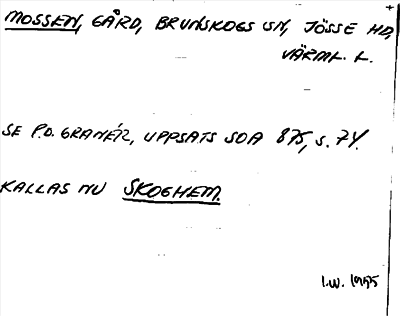 MOSSEN, GÅRD, BRUNSKOGS SN, JÖSSE HD,
VÄRML. L.
SE P.O. GRANÉR, UPPSATS SOA 875, S. 74.
KALLAS NU SKOGHEM.
I.W. 1955